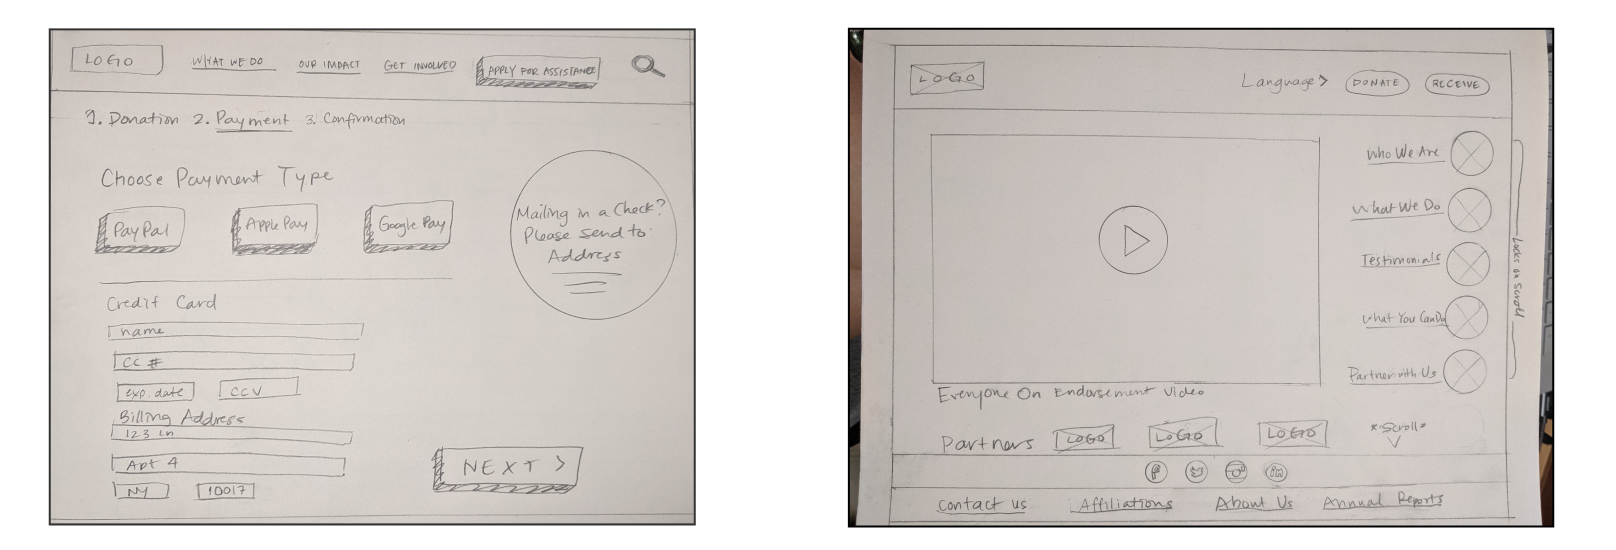 LOGO WHAT WE DO OUR IMPACT GET INVOLVED APPLY FOR ASSISTANCE
1. Donation 2. Payment 3. Confirmation
Choose Payment Type
PayPal Apple Pay Google Pay
Mailing in a Check?
Please send to:
Address
Credit Card
name
CC #
exp. date CCV
Billing Address
123 Ln
Apt 4
NY 10017
NEXT >
LOGO Language > DONATE RECEIVE
Who We Are
What We Do
Testimonials
What You Can Do
Partner with Us
Locks on Scroll
Everyone On Endorsement Video
Partners LOGO LOGO LOGO
*Scroll*
f in
Contact us Affiliations About Us Annual Reports